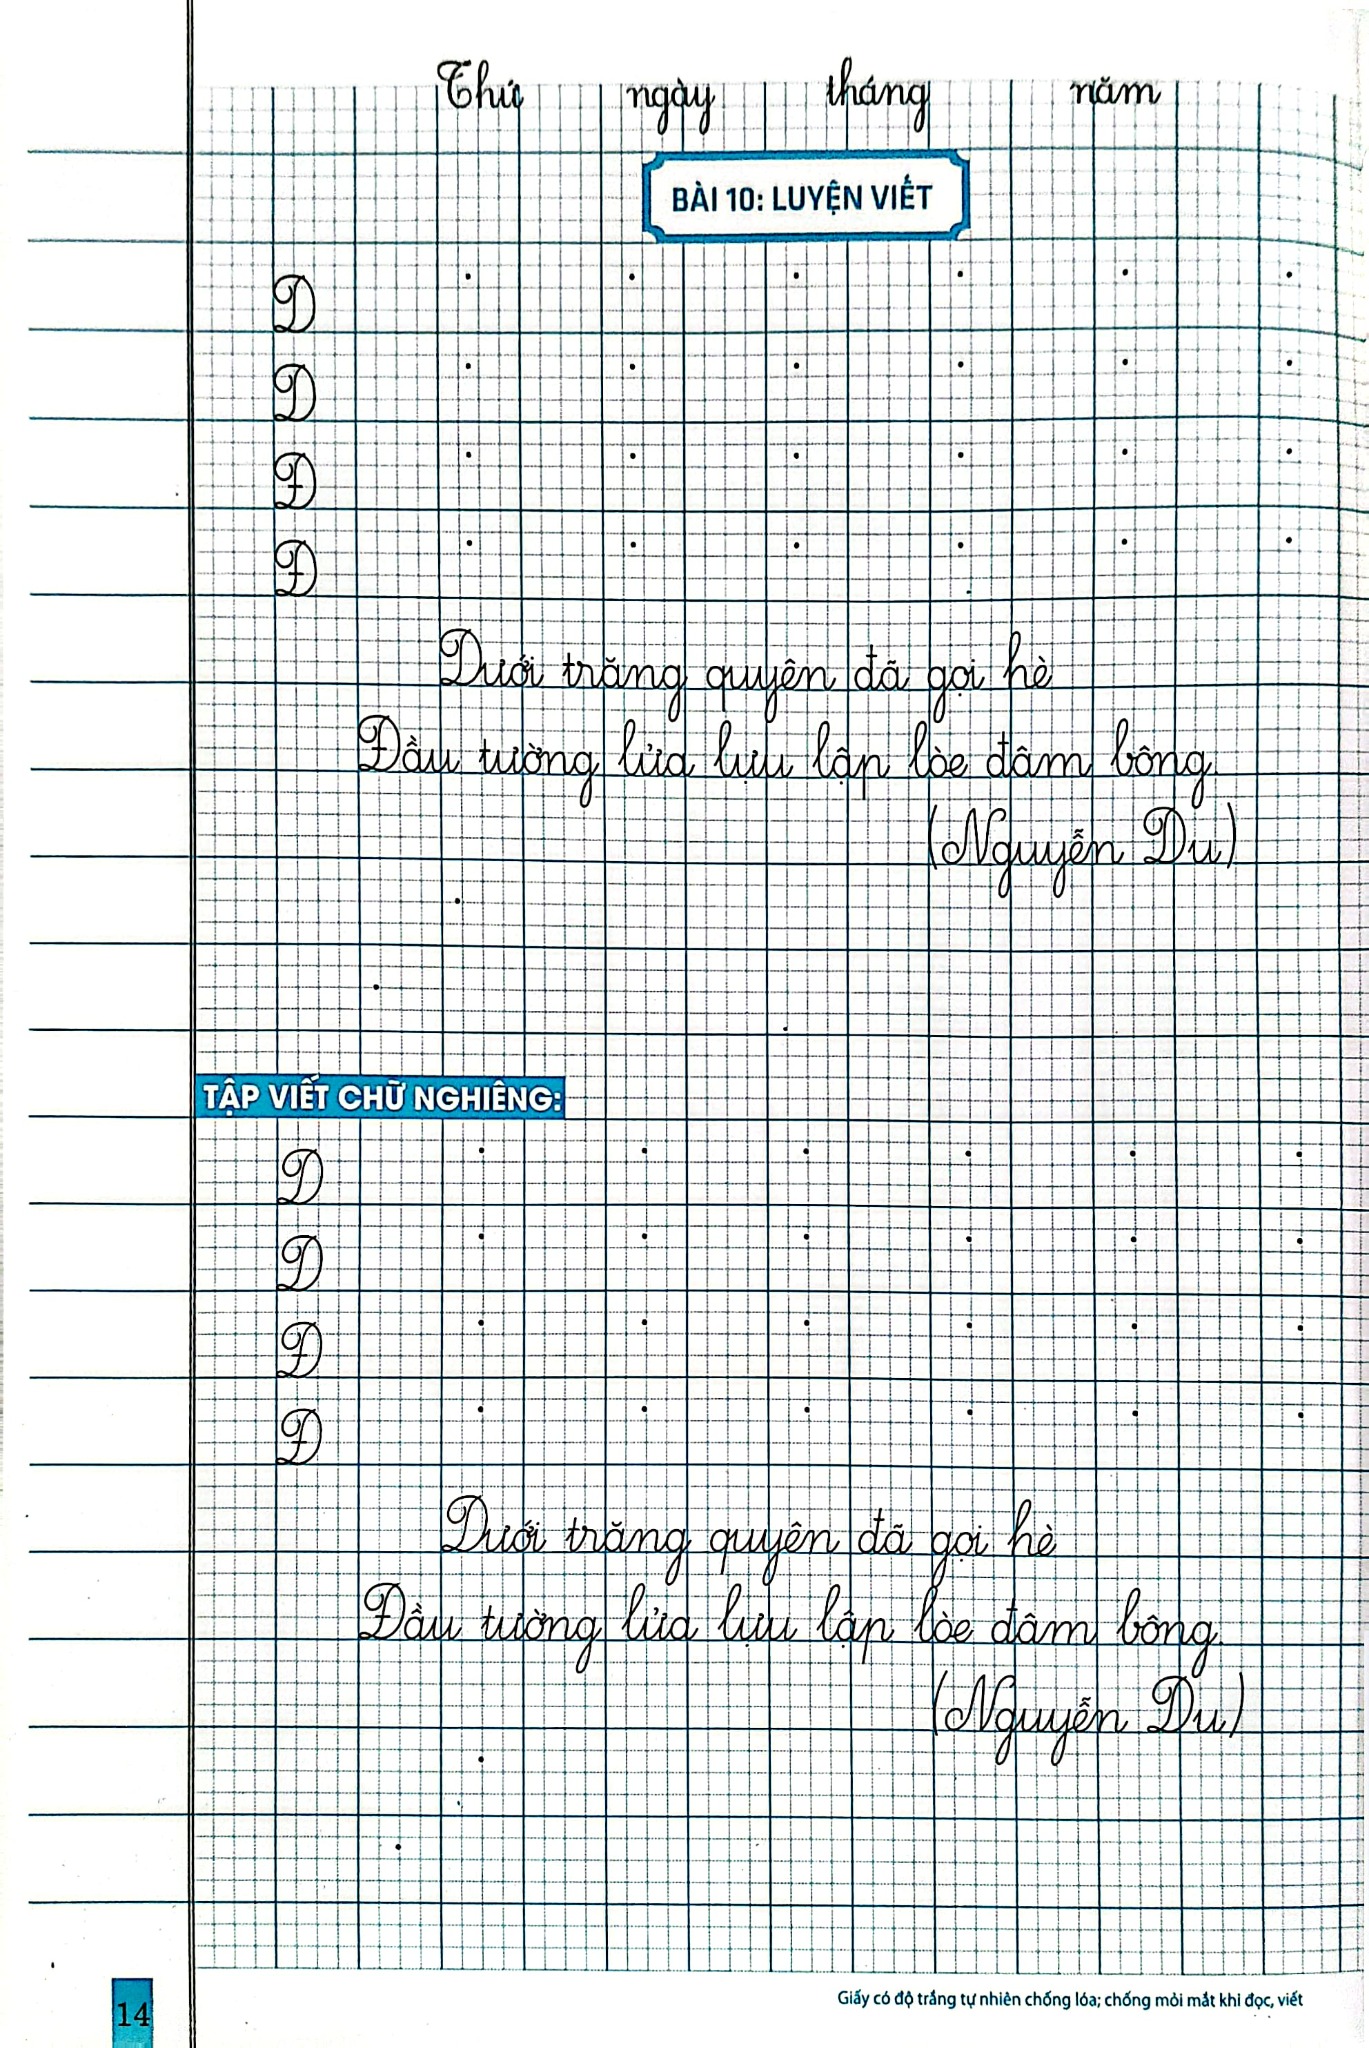 Thứ ngày tháng năm
BÀI 10: LUYỆN VIẾT
D
D
Đ
Đ
Dưới trăng quyên đã gọi hè
Đầu tường lửa lựu lập lòe đâm bông.
(Nguyễn Du)
TẬP VIẾT CHỮ NGHIÊNG:
D
D
Đ
Đ
Dưới trăng quyên đã gọi hè
Đầu tường lửa lựu lập lòe đâm bông.
(Nguyễn Du)
Giấy có độ trắng tự nhiên chống lóa; chống mỏi mắt khi đọc, viết
14